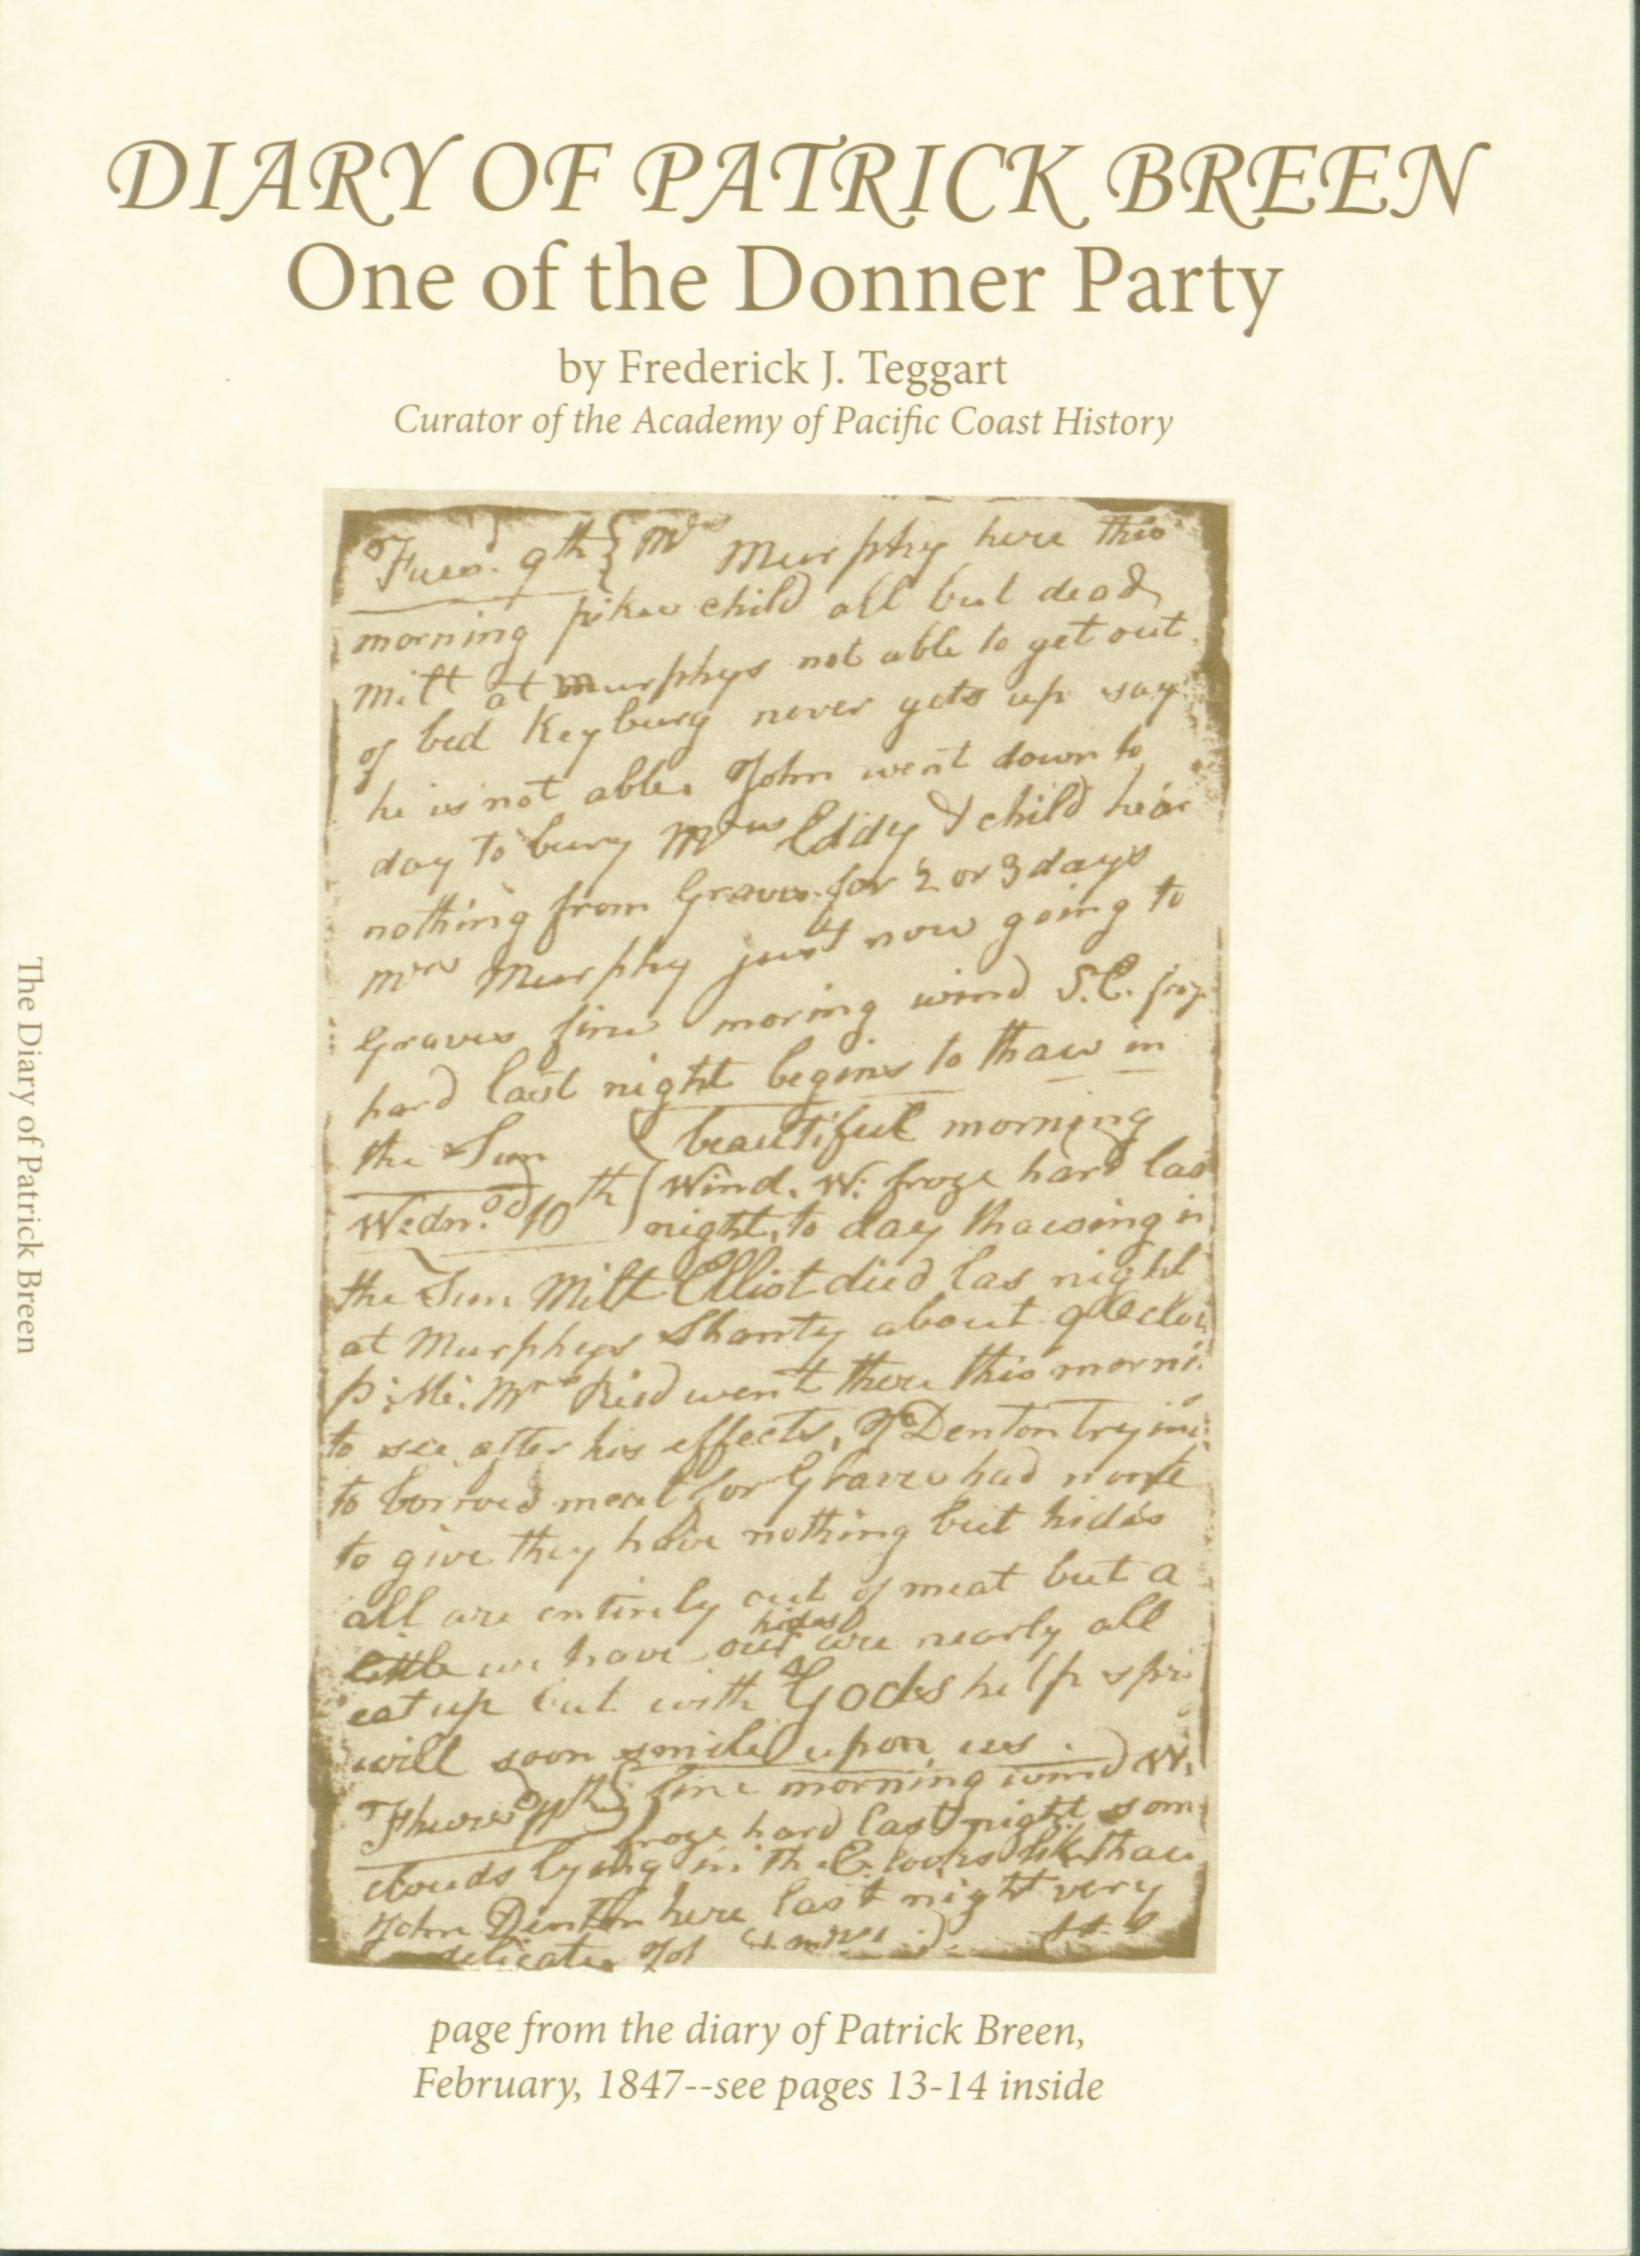 DIARY OF PATRICK BREEN
One of the Donner Party
by Frederick J. Teggart
Curator of the Academy of Pacific Coast History
Tues. 9th Mrs Murphy here this
morning pikes child all but dead
Milt at Murphys not able to get out
of bed Keyburg never gets up say
he is not able. John went down to
day to bury Mrs Eddy & child hear
nothing from Graves for 2 or 3 days
Mrs Murphy just now going to
Graves fine moring wind S.E. froz
hard last night begins to thaw in
the Sun
beautiful morning
Wednd. 10th Wind. W: froze hard las
night, to day thawing in
the Sun Milt Elliot died las night
at Murphys Shanty about 9 Oclo
P:M: Mrs Reid went there this morni
to see after his effects, J Denton tryin
to borrow meat for Graves had none
to give they have nothing but hides
all are entirely out of meat but a
little we have our hides are nearly all
eat up but with Gods help spri
will soon smile upon us.
Thursd 11th fine morning wind W.
froze hard last night som
clouds lying in the E. looks like thaw
John Denton here last night very
delicate.
page from the diary of Patrick Breen,
February, 1847--see pages 13-14 inside
The Diary of Patrick Breen